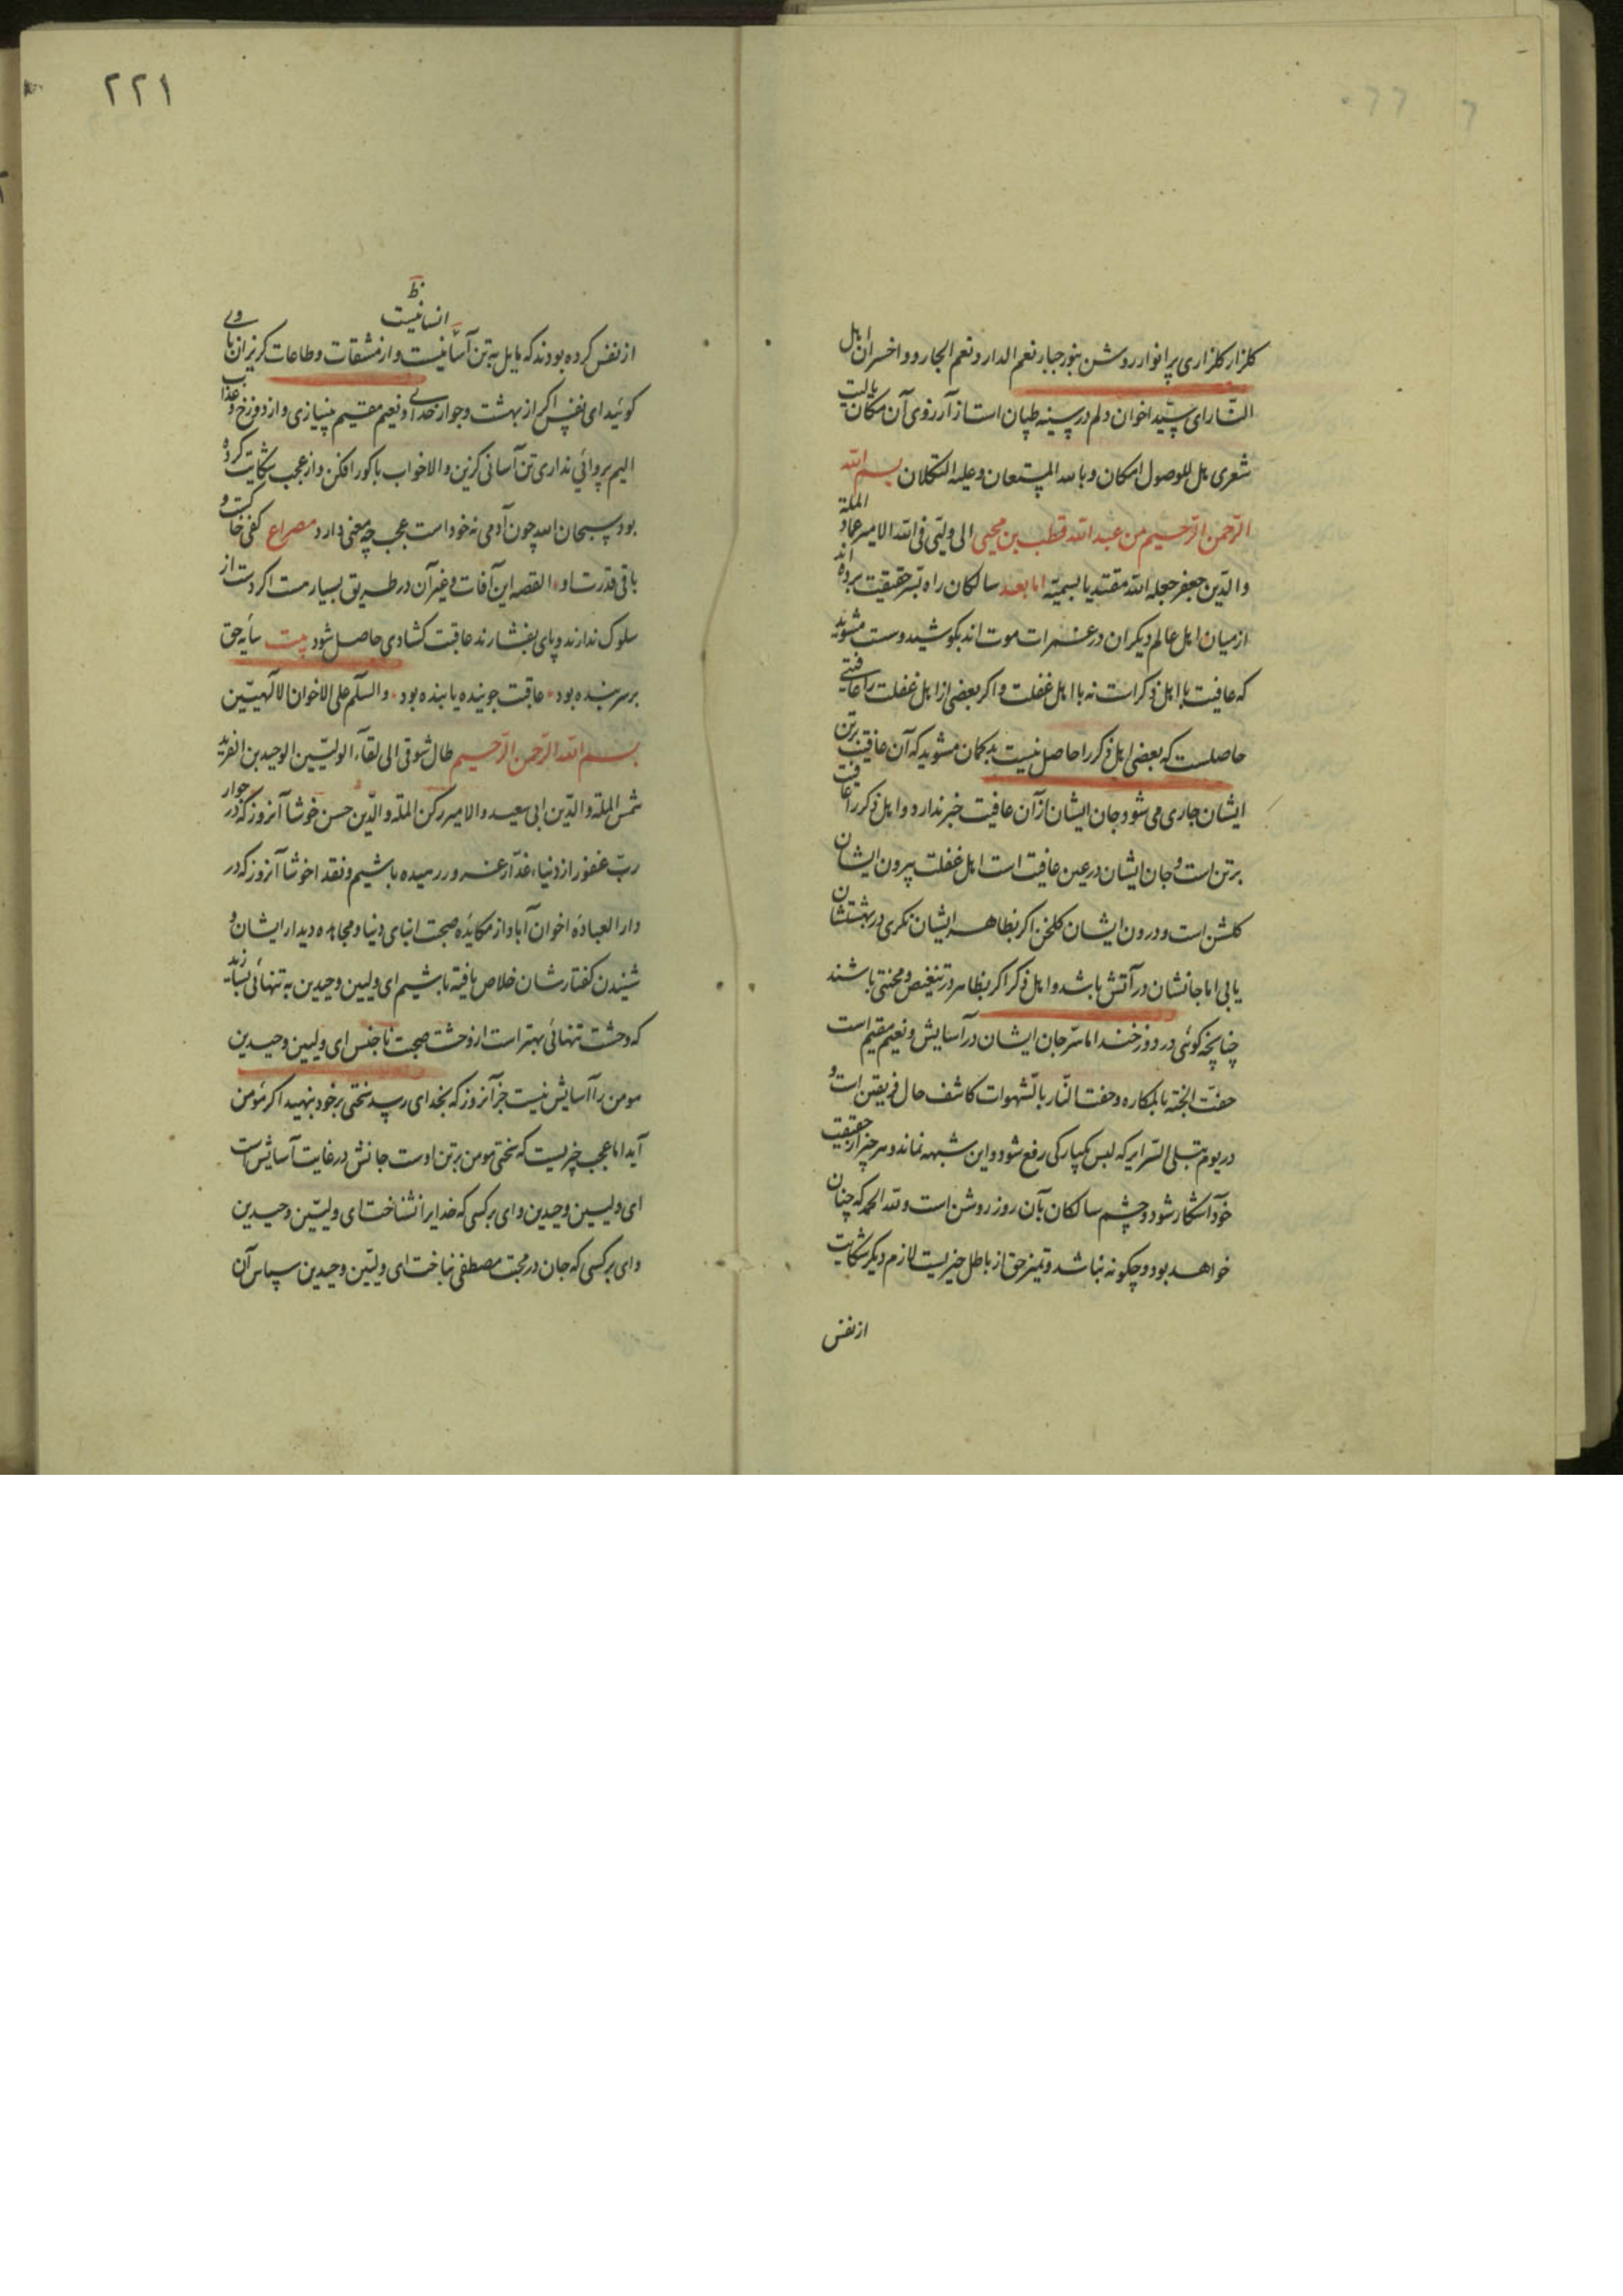 کلزار کلزاری پر انوار روشن بنور جبار نعم الدار و نعم الجار و واخسران اهل
النار ای سید اخوان دلم در سینه طپان است از آرزوی آن مکان یا لیت
شعری هل للوصول امکان و بالله المستعان و علیه التکلان بسم الله
الرحمن الرحیم من عبد الله قطب بن محیی الی ولیی فی الله الامیر عماد الملة
والدین جعفر جعله الله مقتدیا بسمیه اما بعد سالکان راه بسر حقیقت برده اند
از میان اهل عالم دیکران در غمرات موت اند بکوشید و ست مشوید
که عافیت با اهل ذکر است نه با اهل غفلت و اکر بعضی از اهل غفلت را عافیتی
حاصلست که بعضی اهل ذکر را حاصل نیست بد کمان مشوید که آن عافیت برتن
ایشان جاری می شود و جان ایشان از آن عافیت خبر ندارد و اهل ذکر را عافیت
برتن است و جان ایشان در عین عافیت است اهل غفلت بیرون ایشان
کلشن است و درون ایشان کلخن اکر بظاهر ایشان نکری در بهشتشان
یابی اما جانشان در آتش باشد و اهل ذکر اکر بظاهر در تنغیص و محنتی باشند
چنانچه کوئی در دوزخند اما سر جان ایشان در آسایش و نعیم مقیم است
حفت الجنه بالمکاره و حفت النار بالشهوات کاشف حال فریقین است و
در یوم تبلی السرایر که لبس یکبارکی رفع شود و این شبهه نماند و هر چیز از حقیقت
خود آشکار شود و چشم سالکان بآن روز روشن است و لله الحمد که چنان
خواهد بود و چکونه نباشد و تمیز حق از باطل چیزیست لازم دیکر شکایت
از نفس
٢٢١
ظ
انسانیست
از نفس کرده بودند که مایل به تن آسانیست و از مشقات و طاعات کریزان با وی
کوئید ای نفس اکر از بهشت و جوار خدای و نعیم مقیم بی نیازی و از دوزخ و عذاب
الیم پروائی نداری تن آسانی کزین والا خواب با کور افکن و از عجب شکایت کرده
بود سبحان الله چون آدمی نه خود است عجب چه معنی دارد مصراع کفی خاکست و
باقی قدرت او القصه این آفات و غیر آن در طریق بسیار هست اکر دست از
سلوک ندارند و پای بفشارند عاقبت کشادی حاصل شود بیت سایه حق
بر سر بنده بود عاقبت جوینده یابنده بود والسلام علی الاخوان الالهیین
بسم الله الرحمن الرحیم طال شوقی الی لقاء الولیین الوحیدین الفرید
شمس الملة والدین ابی سعید والامیر رکن الملة والدین حسن خوشا آنروز که در جوار
رب غفور از دنیاء غدار غرور رمیده باشیم و نقد اخوشا آنروز که در
دار العباده اخوان آباد از مکایده صحبت ابنای دنیا و مجاهده دیدار ایشان و
شنیدن کفتارشان خلاص یافته باشیم ای ولیین وحیدین به تنهائی بسازید
که وحشت تنهائی بهتر است از وحشت صحبت ناجنس ای ولیین وحیدین
مومن را آسایش نیست جز آنروز که بخدای رسد سختی بر خود بنهید اکر مؤمن
آید اما عجب چیزیست که سختی مومن برتن اوست جانش در غایت آسایش است
ای ولیین وحیدین وای بر کسی که خدایرا نشناخت ای ولیین وحیدین
وای بر کسی که جان در محبت مصطفی نباخت ای ولیین وحیدین سپاس آن